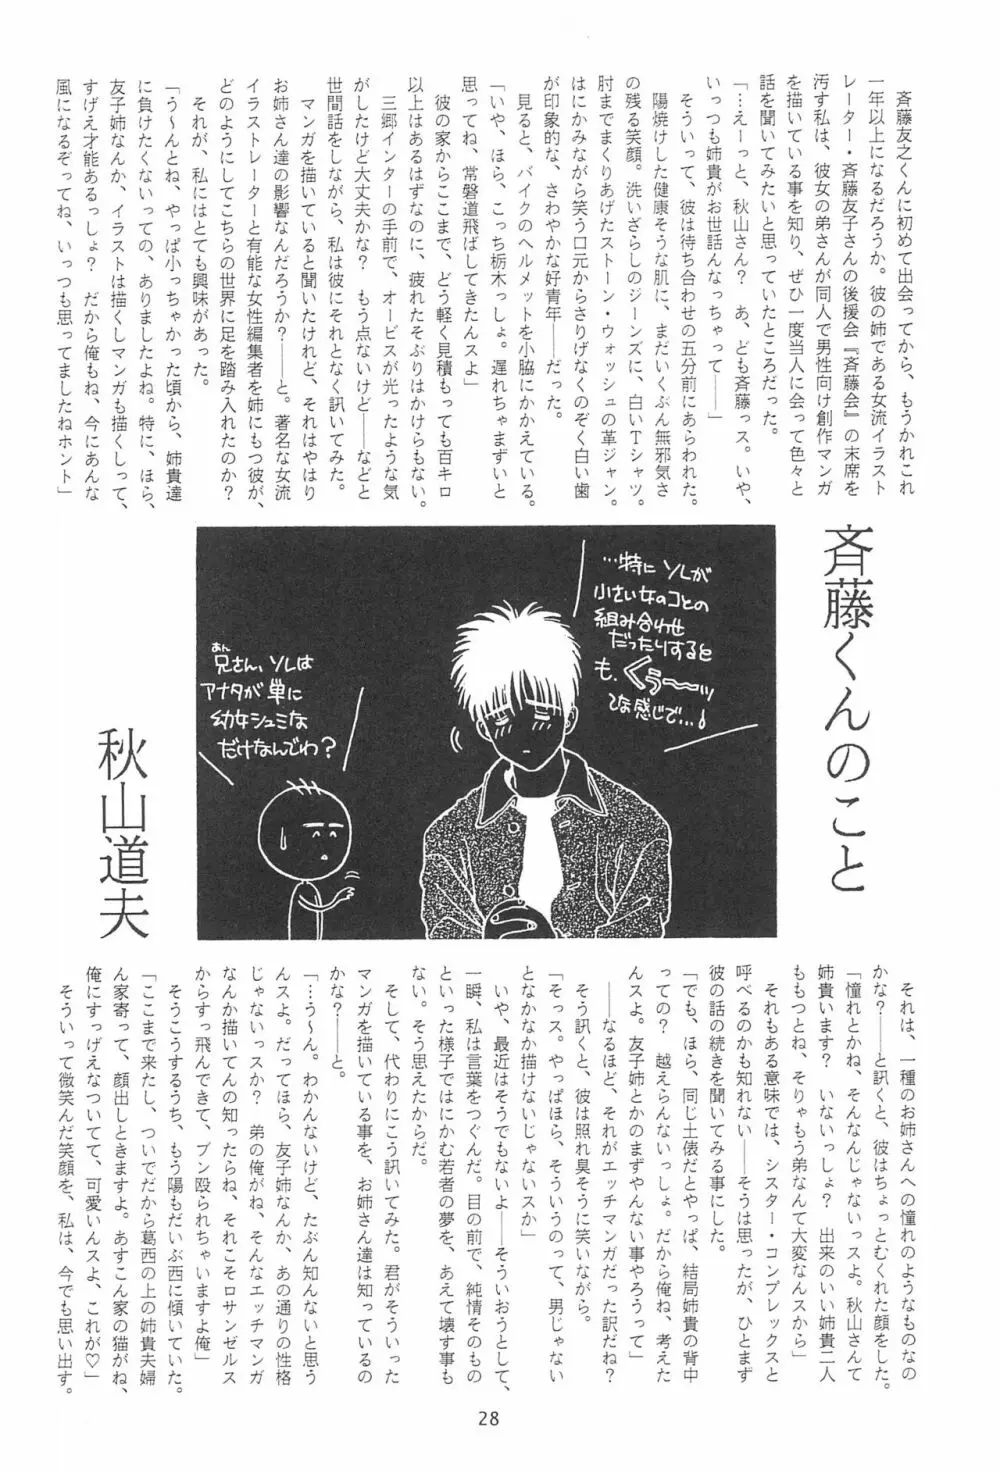 斉藤くんのこと
秋山道夫
斉藤友之くんに初めて出会ってから、もうかれこれ
一年以上になるだろうか。彼の姉である女流イラスト
レーター・斉藤友子さんの後援会『斉藤会』の末席を
汚す私は、彼女の弟さんが同人で男性向け創作マンガ
を描いている事を知り、ぜひ一度当人に会って色々と
話を聞いてみたいと思っていたところだった。
「…えーっと、秋山さん？　あ、ども斉藤っス。いや、
いっつも姉貴がお世話んなっちゃって――」
そういって、彼は待ち合わせの五分前にあらわれた。
陽焼けした健康そうな肌に、まだいくぶん無邪気さ
の残る笑顔。洗いざらしのジーンズに、白いTシャツ。
肘までまくりあげたストーン・ウォッシュの革ジャン。
はにかみながら笑う口元からさりげなくのぞく白い歯
が印象的な、さわやかな好青年――だった。
見ると、バイクのヘルメットを小脇にかかえている。
「いや、ほら、こっち栃木っしょ。遅れちゃまずいと
思ってね、常磐道飛ばしてきたんスよ」
彼の家からここまで、どう軽く見積もっても百キロ
以上はあるはずなのに、疲れたそぶりはかけらもない。
三郷インターの手前で、オービスが光ったような気
がしたけど大丈夫かな？　もう点ないけど――などと
世間話をしながら、私は彼にそれとなく訊いてみた。
マンガを描いていると聞いたけれど、それはやはり
お姉さん達の影響なんだろうか？――と。著名な女流
イラストレーターと有能な女性編集者を姉にもつ彼が、
どのようにしてこちらの世界に足を踏み入れたのか？
それが、私にはとても興味があった。
「う〜んとね、やっぱ小っちゃかった頃から、姉貴達
に負けたくないっての、ありましたよね。特に、ほら、
友子姉なんか、イラストは描くしマンガも描くしって、
すげえ才能あるっしょ？　だから俺もね、今にあんな
風になるぞってね、いっつも思ってましたねホント」
…特にソレが
小さい女のコとの
組み合わせ
だったりすると
も、くぅ〜〜ッ
てな感じで…！
あん
兄さん、ソレは
アナタが単に
幼女シュミな
だけなんでわ？
それは、一種のお姉さんへの憧れのようなものなの
かな？――と訊くと、彼はちょっとむくれた顔をした。
「憧れとかね、そんなんじゃないっスよ。秋山さんて
姉貴います？　いないっしょ？　出来のいい姉貴二人
ももつとね、そりゃもう弟なんて大変なんスから」
それもある意味では、シスター・コンプレックスと
呼べるのかも知れない――そうは思ったが、ひとまず
彼の話の続きを聞いてみる事にした。
「でも、ほら、同じ土俵だとやっぱ、結局姉貴の背中
っての？　越えらんないっしょ。だから俺ね、考えた
んスよ。友子姉とかのまずやんない事やろうって」
――なるほど、それがエッチマンガだった訳だね？
そう訊くと、彼は照れ臭そうに笑いながら。
「そっス。やっぱほら、そういうのって、男じゃない
となかなか描けないじゃないスか」
いや、最近はそうでもないよ――そういおうとして、
一瞬、私は言葉をつぐんだ。目の前で、純情そのもの
といった様子ではにかむ若者の夢を、あえて壊す事も
ない。そう思えたからだ。
そして、代わりにこう訊いてみた。君がそういった
マンガを描いている事を、お姉さん達は知っているの
かな？――と。
「…う〜ん。わかんないけど、たぶん知んないと思う
んスよ。だってほら、友子姉なんか、あの通りの性格
じゃないっスか？　弟の俺がね、そんなエッチマンガ
なんか描いてんの知ったらね、それこそロサンゼルス
からすっ飛んできて、ブン殴られちゃいますよ俺」
そうこうするうち、もう陽もだいぶ西に傾いていた。
「ここまで来たし、ついでだから葛西の上の姉貴夫婦
ん家寄って、顔出しときますよ。あすこん家の猫がね、
俺にすっげえなついてて、可愛いんスよ、これが♡」
そういって微笑んだ笑顔を、私は、今でも思い出す。
28